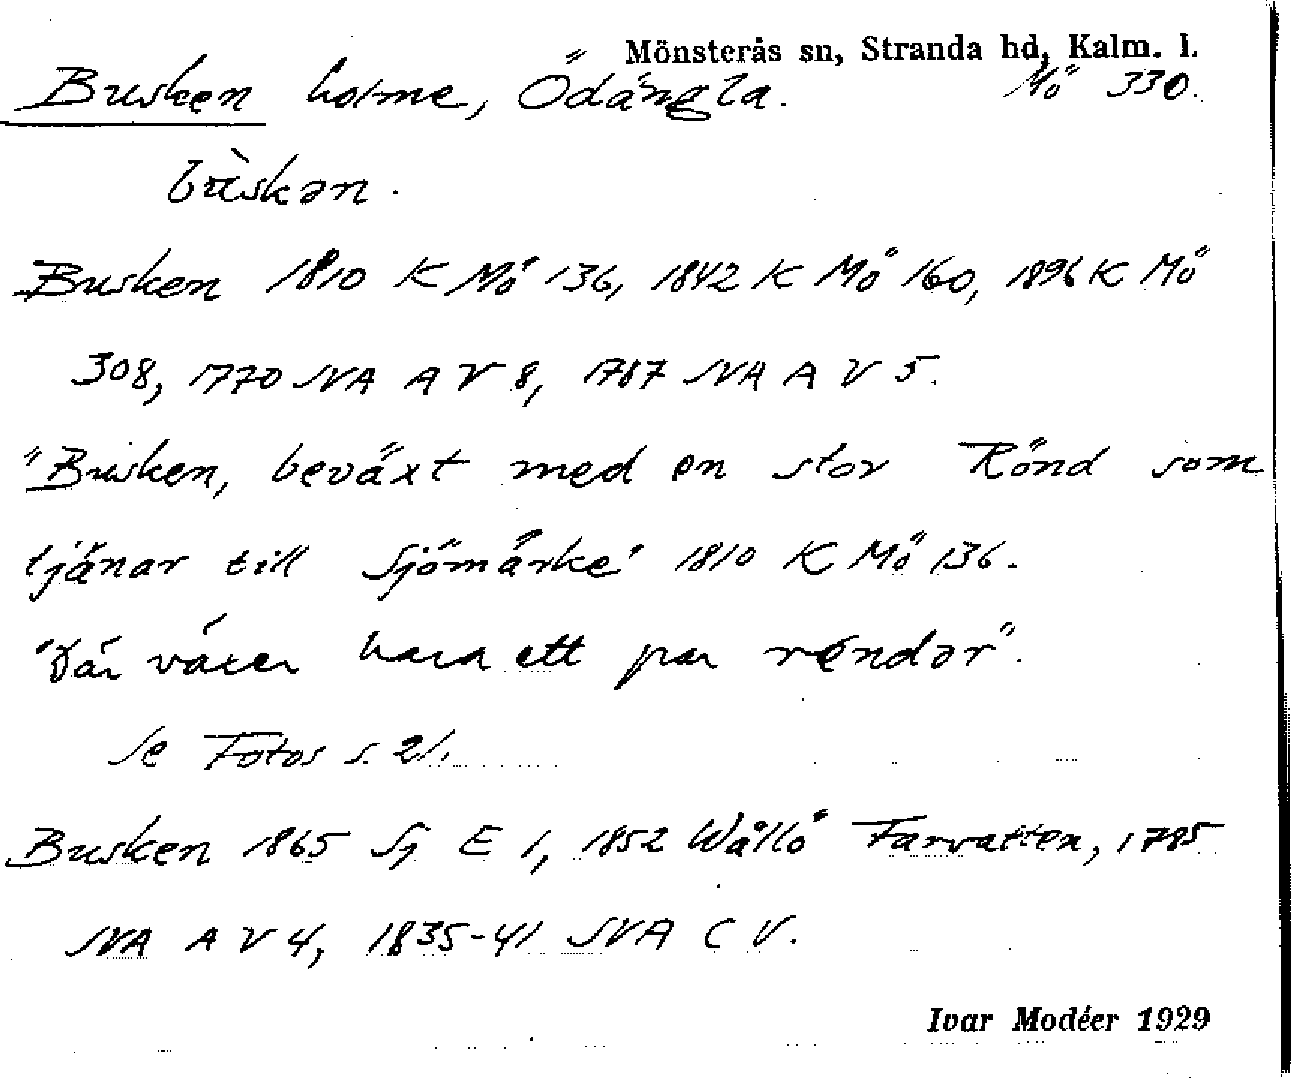 Mönsterås sn, Stranda hd, Kalm. l.
Busken holme, Ödängla. Mö 330.
bùskən.
Busken 1810 K Mö 136, 1842 K Mö 160, 1896 K Mö
308, 1770 SVA A V 8, 1787 SVA A V 5.
"Busken, beväxt med en stor Rönd som
tjänar till Sjömärke" 1810 K Mö 136.
"Där växer bara ett par röndər".
Se Fotos s. 21.
Busken 1865 Sj E 1, 1852 Wållö Farvatten, 1785
SVA A V 4, 1835-41 SVA C V.
Ivar Modéer 1929